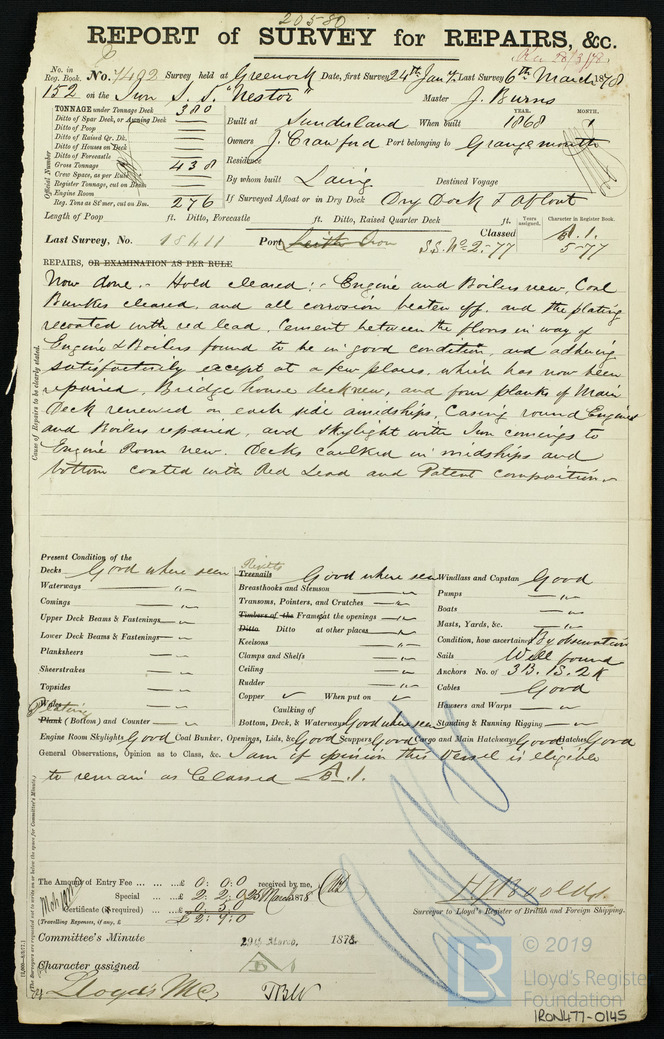 20580
REPORT of SURVEY for REPAIRS, &c.
No. in Reg. Book. No. 7492 Survey held at Greenock Date, first Survey 24th Jany. Last Survey 6th March 1878
152 on the Iron S.S. "Nestor" Master J. Burns
TONNAGE under Tonnage Deck 380
Ditto of Spar Deck, or Awning Deck
Ditto of Poop
Ditto of Raised Qr. Dk.
Ditto of Houses on Deck
Ditto of Forecastle
Gross Tonnage 438
Crew Space, as per Rule
Register Tonnage, cut on Beam
Engine Room
Reg. Tons as St'mer, cut on Bm. 276
Official Number
YEAR. MONTH.
Built at Sunderland When built 1868
Owners J. Crawford Port belonging to Grangemouth
Residence
By whom built Laing Destined Voyage
If Surveyed Afloat or in Dry Dock Dry Dock & Afloat
Length of Poop ft. Ditto, Forecastle ft. Ditto, Raised Quarter Deck ft.
Years assigned. Character in Register Book.
Last Survey, No. 18411 Port Leith Iron Classed A.1.
S.S. No 2-77 5-77
REPAIRS, OR EXAMINATION AS PER RULE
Cause of Repairs to be clearly stated.
Now done. - Hold cleared: - Engine and Boilers new, Coal
Bunker cleared, and all corrosion beaten off, and the plating
recoated with red lead, Cement between the floors in way of
Engine & Boilers found to be in good condition, and adhering
satisfactorily except at a few places, which has now been
repaired, Bridge house deck new, and four planks of Main
Deck renewed on each side amidships, Casing round Engines
and Boilers repaired, and skylight with Iron comings to
Engine Room new. Decks caulked in midships and
bottom coated with Red Lead and Patent composition.
Present Condition of the
Decks Good where seen
Waterways "
Comings "
Upper Deck Beams & Fastenings "
Lower Deck Beams & Fastenings "
Planksheers "
Sheerstrakes "
Topsides "
Wales "
Plating
Plank (Bottom) and Counter "
Rivets
Treenails Good where seen
Breasthooks and Stemson "
Transoms, Pointers, and Crutches "
Timbers of the Frame at the openings "
Ditto Ditto at other places "
Keelsons "
Clamps and Shelfs "
Ceiling "
Rudder "
Copper ✓ When put on ✓
Caulking of
Bottom, Deck, & Waterways Good where seen
Windlass and Capstan Good
Pumps "
Boats "
Masts, Yards, &c. "
Condition, how ascertained By observation
Sails Well found
Anchors No. of 3B. 1S. 2K
Cables Good
Hausers and Warps "
Standing & Running Rigging "
Engine Room Skylights Good Coal Bunker, Openings, Lids, &c Good Scuppers Good Cargo and Main Hatchways Good Hatches Good
General Observations, Opinion as to Class, &c. I am of opinion this Vessel is eligible
to remain as Classed A.1.
The Amount of Entry Fee ... £ 0: 0: 0 received by me,
Special ... £ 2: 2: 0 25 March 1878
Certificate (if required) ... £ 0 5 0
(Travelling Expenses, if any, £ £ 2: 7: 0
Surveyor to Lloyd's Register of British and Foreign Shipping.
Committee's Minute 29th March, 1878.
Character assigned
Lloyds MC
TBW
© 2019
LR
Lloyd's Register
Foundation
IRON477-0145